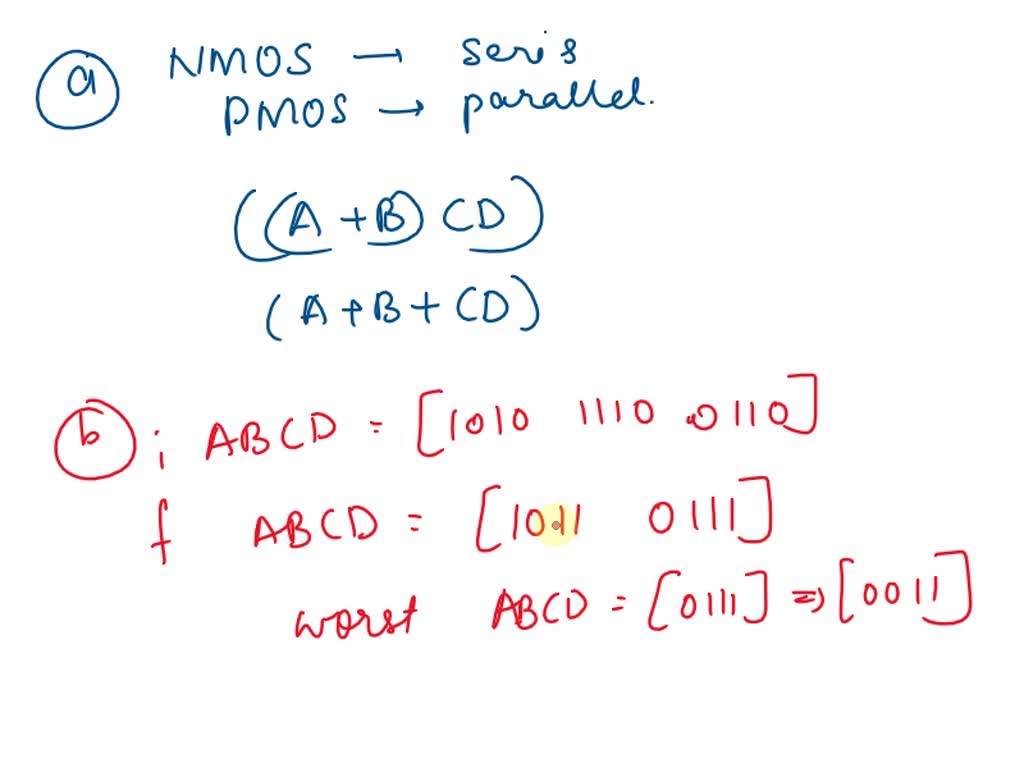 a NMOS → seris
PMOS → parallel.
((A + B) CD)
(A + B + CD)
b i ABCD = [1010 1110 0110]
f ABCD = [1011 0111]
worst ABCD = [0111] ⇒ [0011]